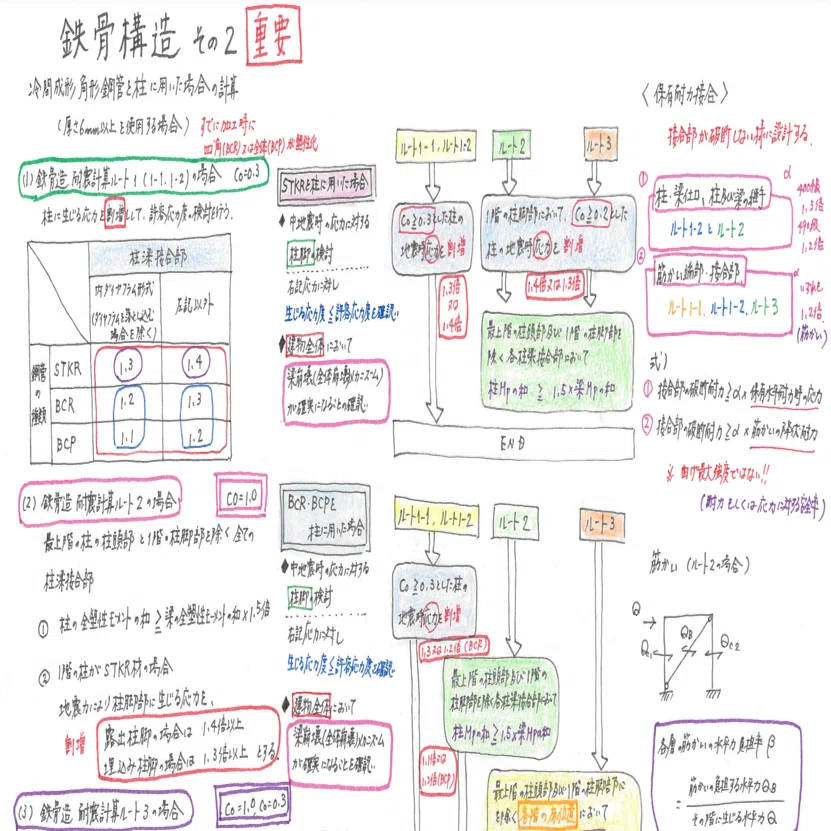 鉄骨構造 その2 重要
冷間成形角形鋼管を柱に用いた場合の計算
(厚さ6mm以上を使用する場合) すでに加工時に
四角(BCR)又は全体(BCP)が塑性化
(1) 鉄骨造 耐震計算ルート1 (1-1, 1-2)の場合 Co=0.3
柱に生じる応力を割増して、許容応力度の検討を行う。
柱梁接合部
内ダイヤフラム形式
(ダイヤフラムを落とし込む
場合を除く)
左記以外
鋼管の種類
STKR 1.3 1.4
BCR 1.2 1.3
BCP 1.1 1.2
(2) 鉄骨造 耐震計算ルート2の場合 Co=1.0
最上階の柱の柱頭部と1階の柱脚部を除く全ての
柱梁接合部
① 柱の全塑性モーメントの和 ≧ 梁の全塑性モーメントの和×1.5倍
② 1階の柱がSTKR材の場合
地震力により柱脚部に生じる応力を、
割増
露出柱脚の場合は 1.4倍以上
埋込み柱脚の場合は 1.3倍以上 とする。
(3) 鉄骨造 耐震計算ルート3の場合 Co=1.0 Co=0.3
STKRを柱に用いた場合
◆中地震時の応力に対する
柱脚の検討
右記応力に対し
生じる応力度≦許容応力度を確認
◆建物全体において
梁崩壊(全体崩壊)メカニズム
が確実になることの確認
ルート1-1, ルート1-2
ルート2
ルート3
Co≧0.3とした柱の
地震時応力を割増
1.3倍
又は
1.4倍
1階の柱脚部において、Co≧0.2とした
柱の地震時応力を割増
1.4倍又は1.3倍
最上階の柱頭部及び1階の柱脚部を
除く各柱梁接合部において
柱Mpの和 ≧ 1.5×梁Mpの和
END
BCR・BCPを
柱に用いた場合
◆中地震時の応力に対する
柱脚の検討
右記応力に対し
生じる応力度≦許容応力度を確認
◆建物全体において
梁崩壊(全体崩壊)メカニズム
が確実になることを確認
ルート1-1, ルート1-2
ルート2
ルート3
Co≧0.3とした柱の
地震時応力を割増
1.3又は1.2倍(BCR)
1.1倍又は
1.2倍(BCP)
最上階の柱頭部及び1階の
柱脚部を除く各柱梁接合部において
柱Mpの和≧1.5×梁Mpの和
最上階の柱頭部及び1階の柱脚部に
を除く各階の床位置において
〈保有耐力接合〉
接合部が破断しない様に設計する。
① 柱・梁仕口、柱及び梁の継手
ルート1-2 と ルート2
α
400級
1.3倍
490級
1.2倍
② 筋かい端部・接合部
ルート1-1、ルート1-2、ルート3
α
いずれも
1.2倍
(筋かい)
式)
① 接合部の破断耐力≧α×保有水平耐力時の応力
② 接合部の破断耐力≧α×筋かいの降伏耐力
※ 曲げ最大強度ではない!!
(耐力もしくは応力に対する安全率)
筋かい (ルート2の場合)
Q
QB
QC1
QC2
各層の筋かいの水平力負担率β
= 筋かいの負担する水平力QB
その階に生じる水平力Q